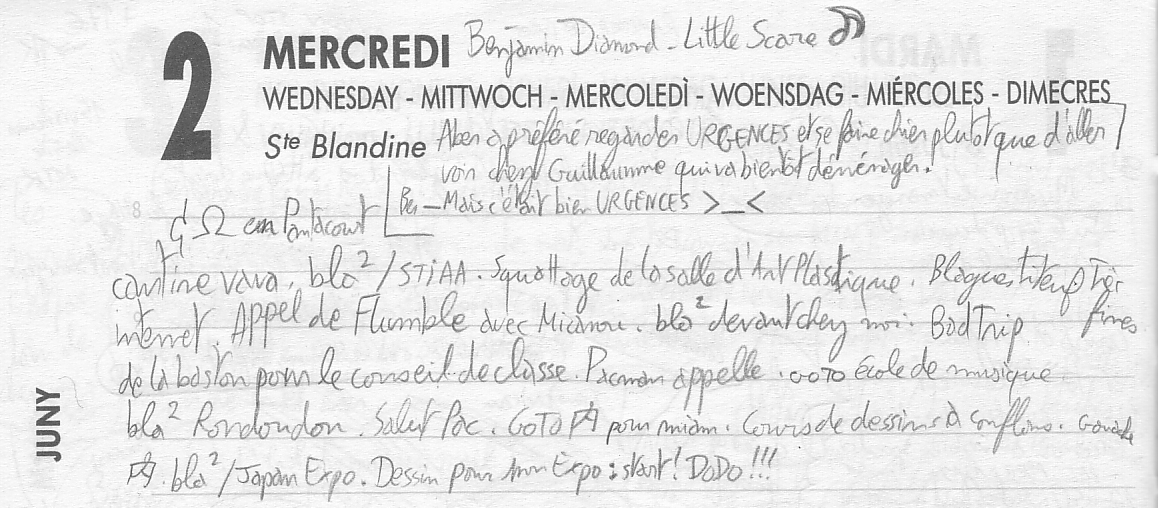 2 MERCREDI Benjamin Diamond - Little Scare
WEDNESDAY - MITTWOCH - MERCOLEDÌ - WOENSDAG - MIÉRCOLES - DIMECRES
Ste Blandine
a préféré regarder URGENCES et se faire chier plutôt que d'aller
voir chez Guillaumme qui va bientôt déménager!
8
Ben — Mais c'était bien URGENCES >_<
Ω en
cantine vava. bla²/STiAA. Squattage de la salle d'Art Plastique. Blague
internet. Appel de Flumble avec . bla² devant chez moi. Bad Trip fines
de la baston pour le conseil de classe. Pacman appelle. GOTO école de musique
bla² Rondoudou. Salut Pac. GOTO 内 pour miam. Cours de dessins à conflans.
内. bla²/Japan Expo. Dessin pour mon Expo : start! DoDo!!!
JUNY